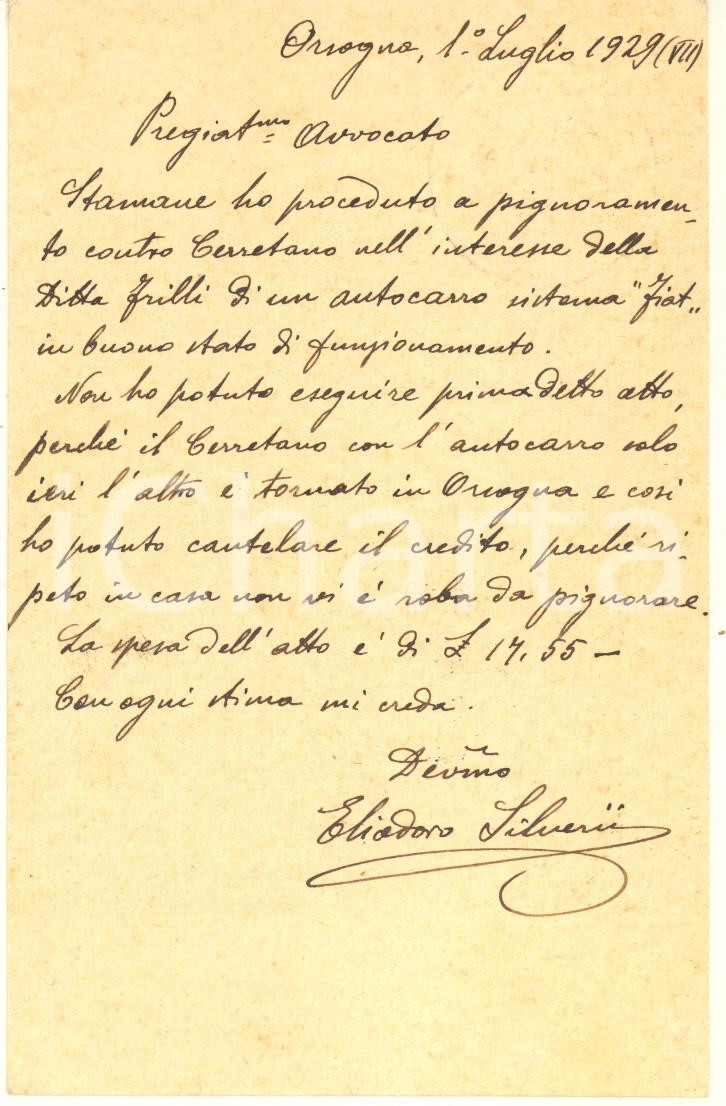 Orsogna, 1º Luglio 1929 (VII)
Pregiatmo Avvocato
Stamane ho proceduto a pignoramen-
to contro Cerretano nell' interesse della
Ditta Frilli di un autocarro sistema "Fiat"
in buono stato di funzionamento.
Non ho potuto eseguire prima detto atto,
perché il Cerretano con l' autocarro solo
ieri l' altro é tornato in Orsogna e cosí
ho potuto cautelare il credito, perché ri-
peto in casa non vi é roba da pignorare.
La spesa dell' atto é di £ 17,55 —
Con ogni stima mi creda.
Devmo
Eliodoro Silverii